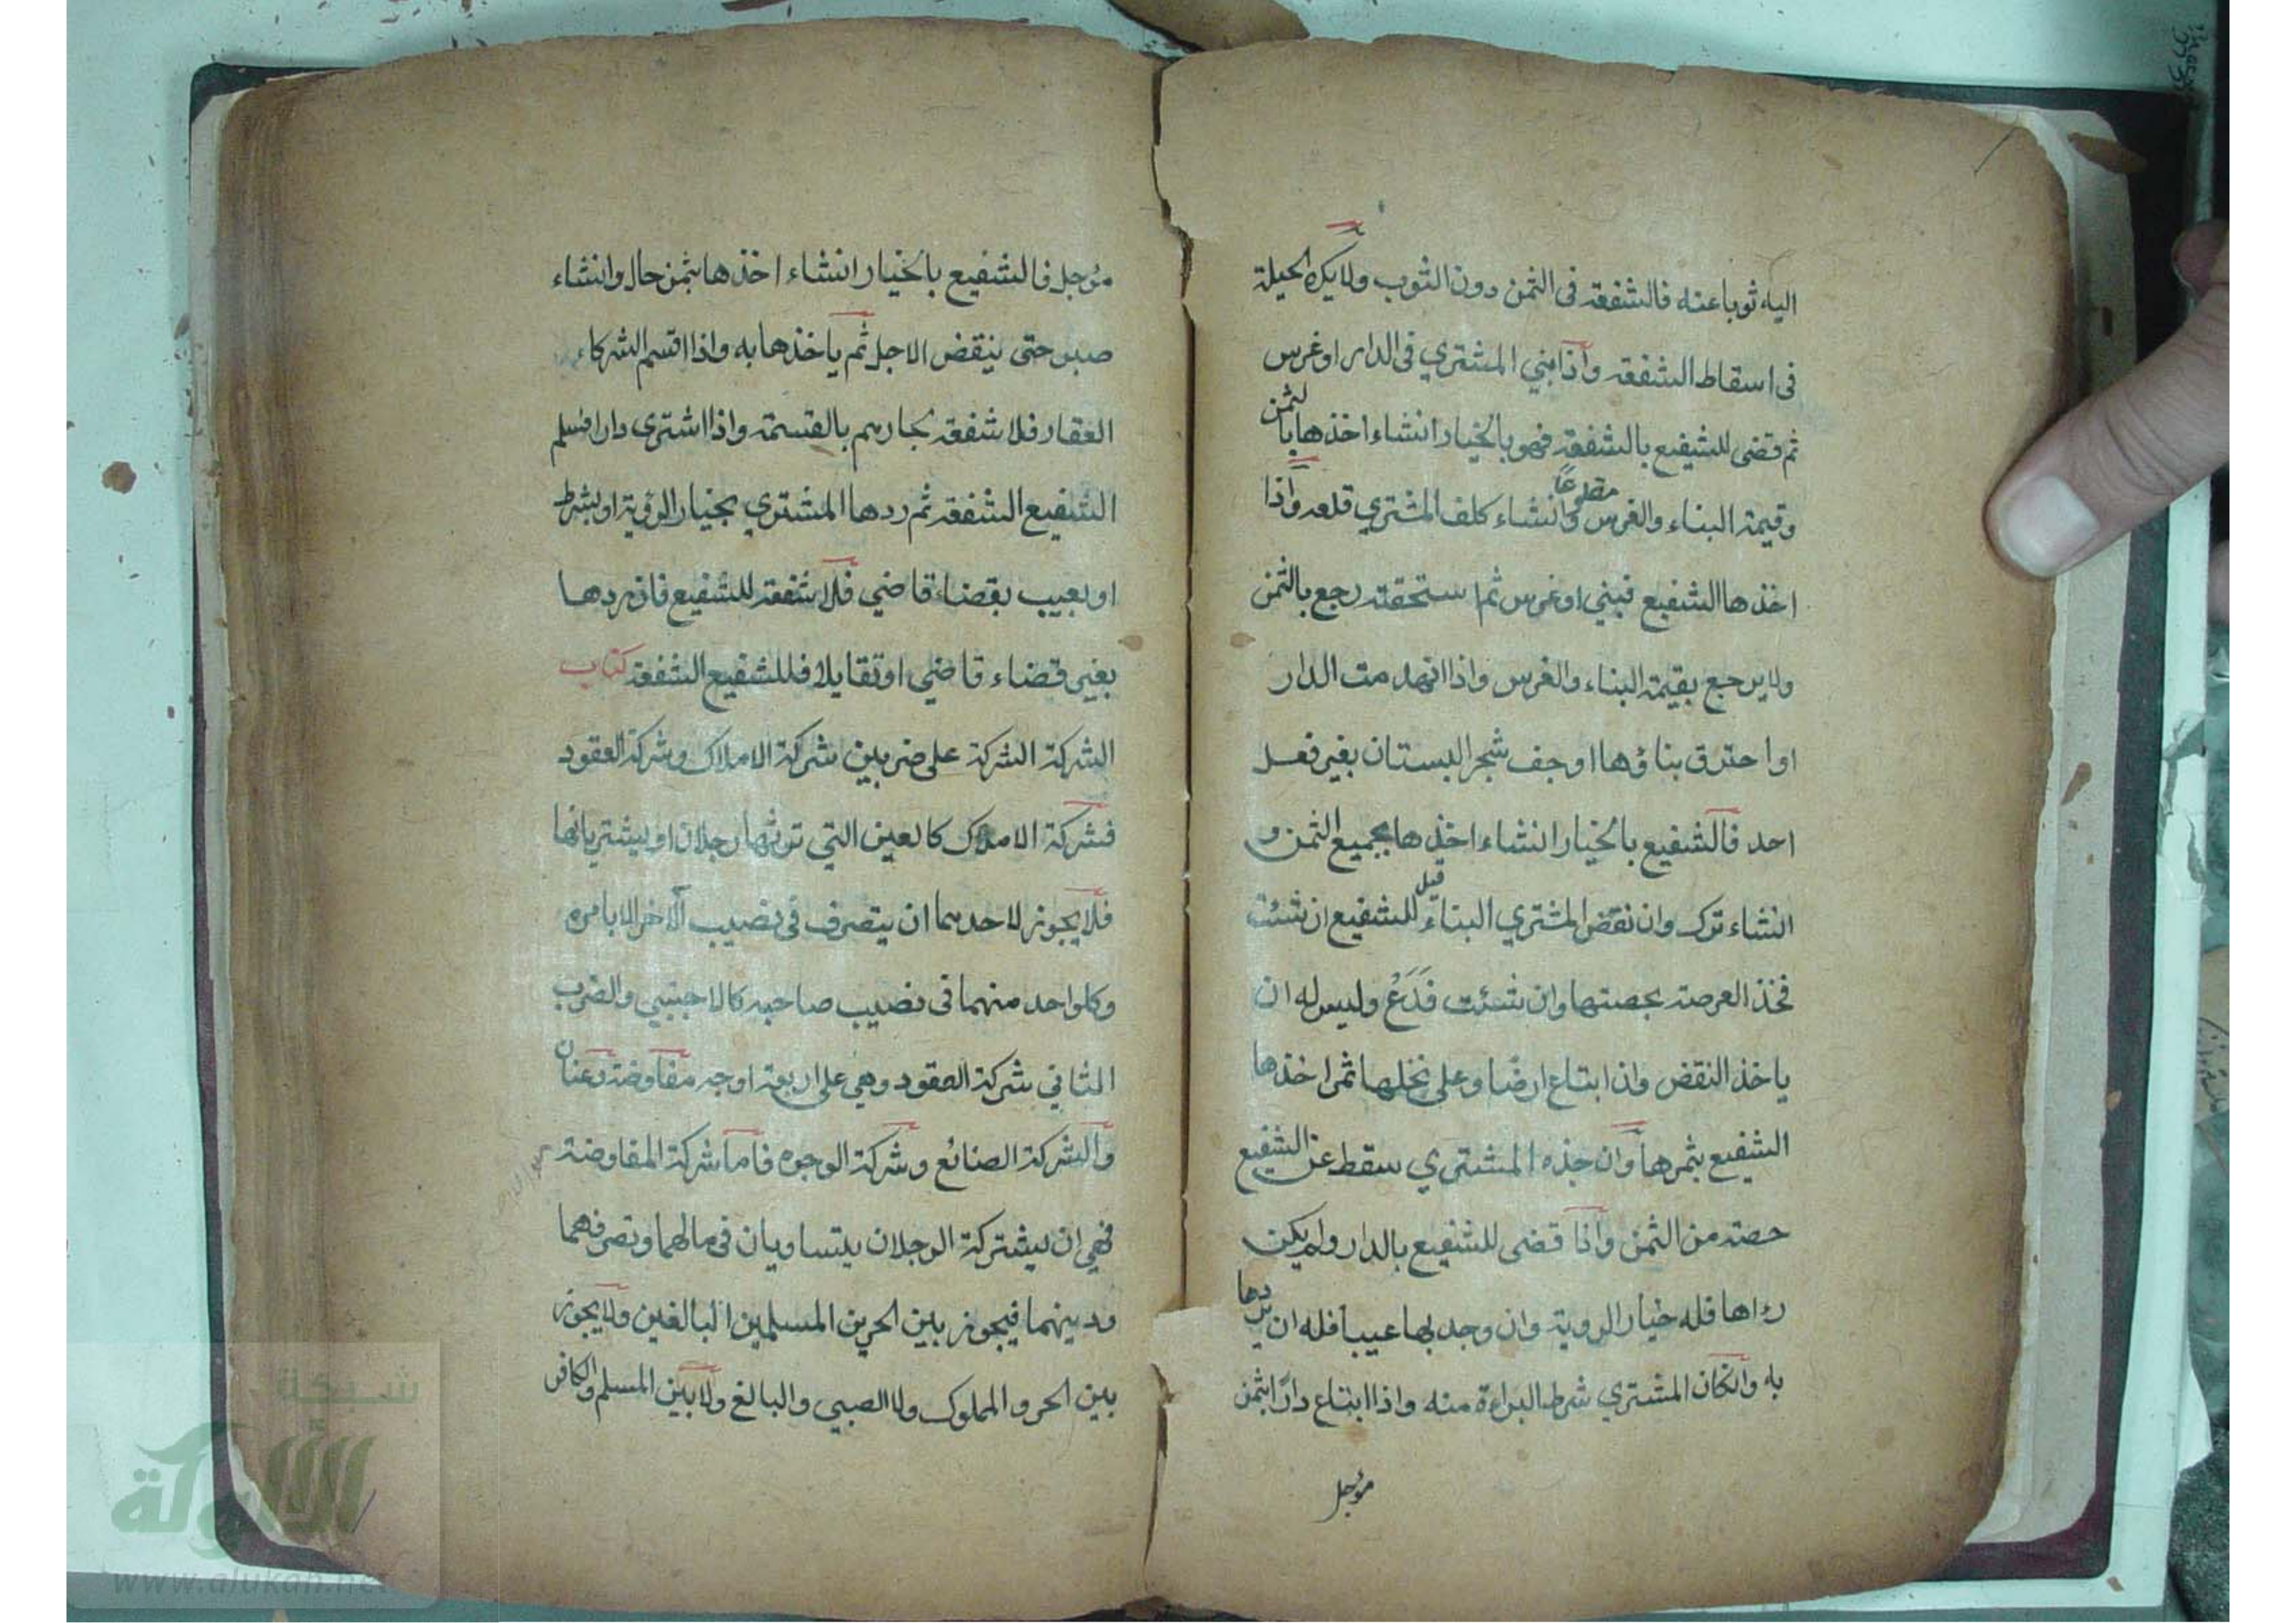 اليه ثوبا عنه فالشفعة فى الثمن دون الثوب ولا يكره الحيلة
فى اسقاط الشفعة واذا بني المشتري فى الدار او غرس
ثم قضى للشفيع بالشفعة فهو بالخيار انشاء اخذها بالثمن
وقيمة البناء والغرس مقلوعًا وانشاء كلف المشتري قلعه واذا
اخذها الشفيع فبني او غرس ثم استحقته رجع بالثمن
ولا يرجع بقيمة البناء والغرس واذا انهدمت الدار
او احترق بناؤها او جف شجر البستان بغير فعل
احد فالشفيع بالخيار انشاء اخذها بجميع الثمن و
انشاء ترك وان نقض المشتري البناء قيل للشفيع ان شئت
فخذ العرصة بحصتها وان شئت فَدَعْ وليس له ان
ياخذ النقض واذا ابتاع ارضا وعلى نخلها ثمر اخذها
الشفيع بثمرها وان جذه المشتري سقط عن الشفيع
حصته من الثمن واذا قضى للشفيع بالدار ولم يكن
رءاها فله خيار الروية وان وجد بها عيبا فله ان يردها
به وانكان المشتري شرط البراءة منه واذا ابتاع دارًا بثمن
مؤجل
مؤجل فالشفيع بالخيار انشاء اخذها بثمن حال وانشاء
صبر حتى ينقض الاجل ثم ياخذها به واذا اقسم الشركاء
العقار فلا شفعة بجارهم بالقسمة واذا اشترى دارا فسلم
الشفيع الشفعة ثم ردها المشتري بخيار الرؤية او بشرط
او بعيب بقضاء قاضي فلا شفعة للشفيع فان ردها
بغير قضاء قاضي او تقايلا فللشفيع الشفعة كتاب
الشركة الشركة على ضربين شركة الاملاك وشركة العقود
فشركة الاملاك كالعين التي ترثها رجلان او يشتريانها
فلا يجوز لاحدهما ان يتصرف فى نصيب الآخر الا بامره
وكل واحد منهما فى نصيب صاحبه كالاجنبي والضرب
الثاني شركة العقود وهي على اربعة اوجه مفاوضة وعنان
والشركة الصنائع وشركة الوجوه فاما شركة المفاوضة
فهي ان يشتركة الرجلان يتساويان فى مالهما وتصرفهما
ودينهما فيجوز بين الحرين المسلمين البالغين ولا يجوز
بين الحر والمملوك ولا الصبي والبالغ ولا بين المسلم والكافر
شبكة
الألوكة
www.alukah.net